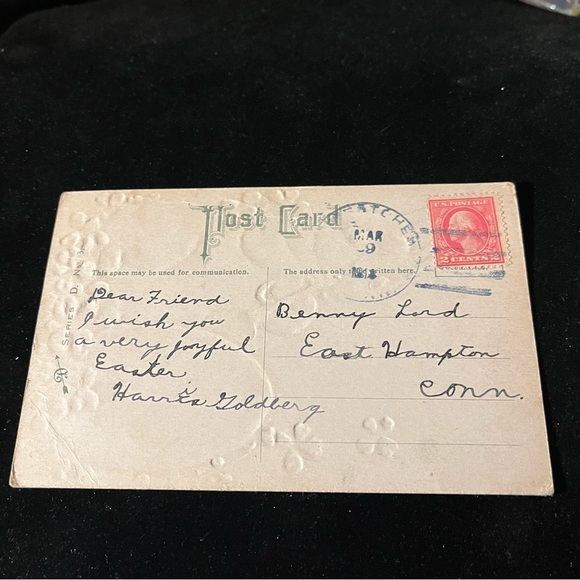 Post Card
MAR
U.S. POSTAGE
2 CENTS 2
This space may be used for communication.
The address only written here.
SERIES D, No.
Dear Friend
I wish you
a very joyful
Easter
Harris Goldberg
Benny Lord
East Hampton
Conn.